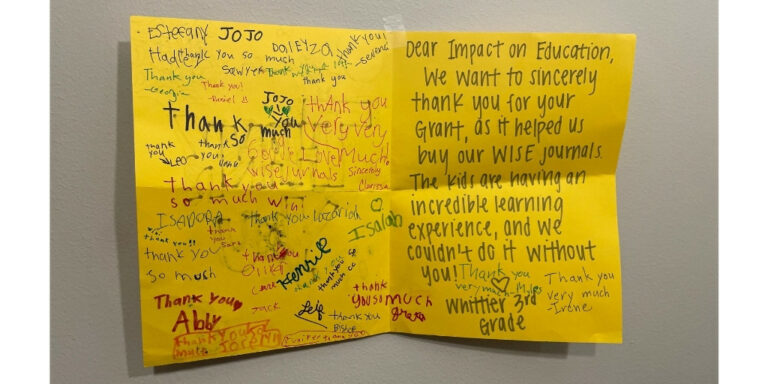 Estefany JOJO
Hadley
thank you so much
Daleyza
thank you!
Serena
Thank you
-Georgia
Sawyer
thank you
Thank you!
JoJo
thank
so
you
much
thAnk you
very very
much
Sincerly
Clarissa
thank
you
Leo
thank
you
I Love
wise Jurnals
thank you
so much
ISADORA
thank you Lazariah
Isaiah
thank you!!
thank
you
Sara
thank you
so much
thank you
Henrik
Jack
Thank you
Abby
Leif
thank you
Bishop
thank
you so much
greta
Thank You
Joselyn
Dear Impact on Education,
We want to sincerely
thank you for your
Grant, as it helped us
buy our WISE journals.
The kids are having an
incredible learning
experience, and we
couldn't do it without
you!
Thank you
very much Myles
Thank you
very much
-Irene
Whittier 3rd
Grade